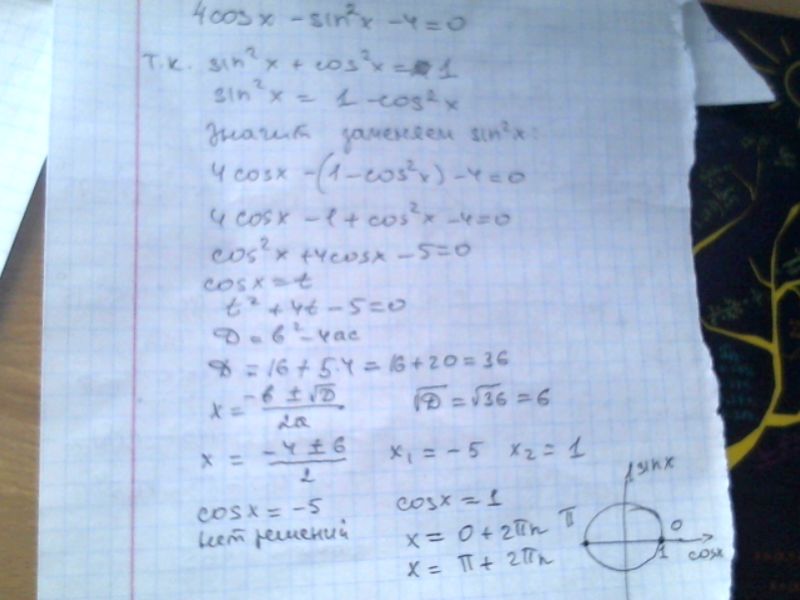 4cosx - sin²x - 4 = 0
т.к. sin²x + cos²x = 1
sin²x = 1 - cos²x
Значит заменяем sin²x:
4cosx - (1 - cos²x) - 4 = 0
4cosx - 1 + cos²x - 4 = 0
cos²x + 4cosx - 5 = 0
cosx = t
t² + 4t - 5 = 0
D = b² - 4ac
D = 16 + 5·4 = 16 + 20 = 36
x = (-b ± √D)/2a √D = √36 = 6
x = (-4 ± 6)/2 x₁ = -5 x₂ = 1
cosx = -5 cosx = 1
нет решений x = 0 + 2πn
x = π + 2πn
sinx
π 0
1 cosx